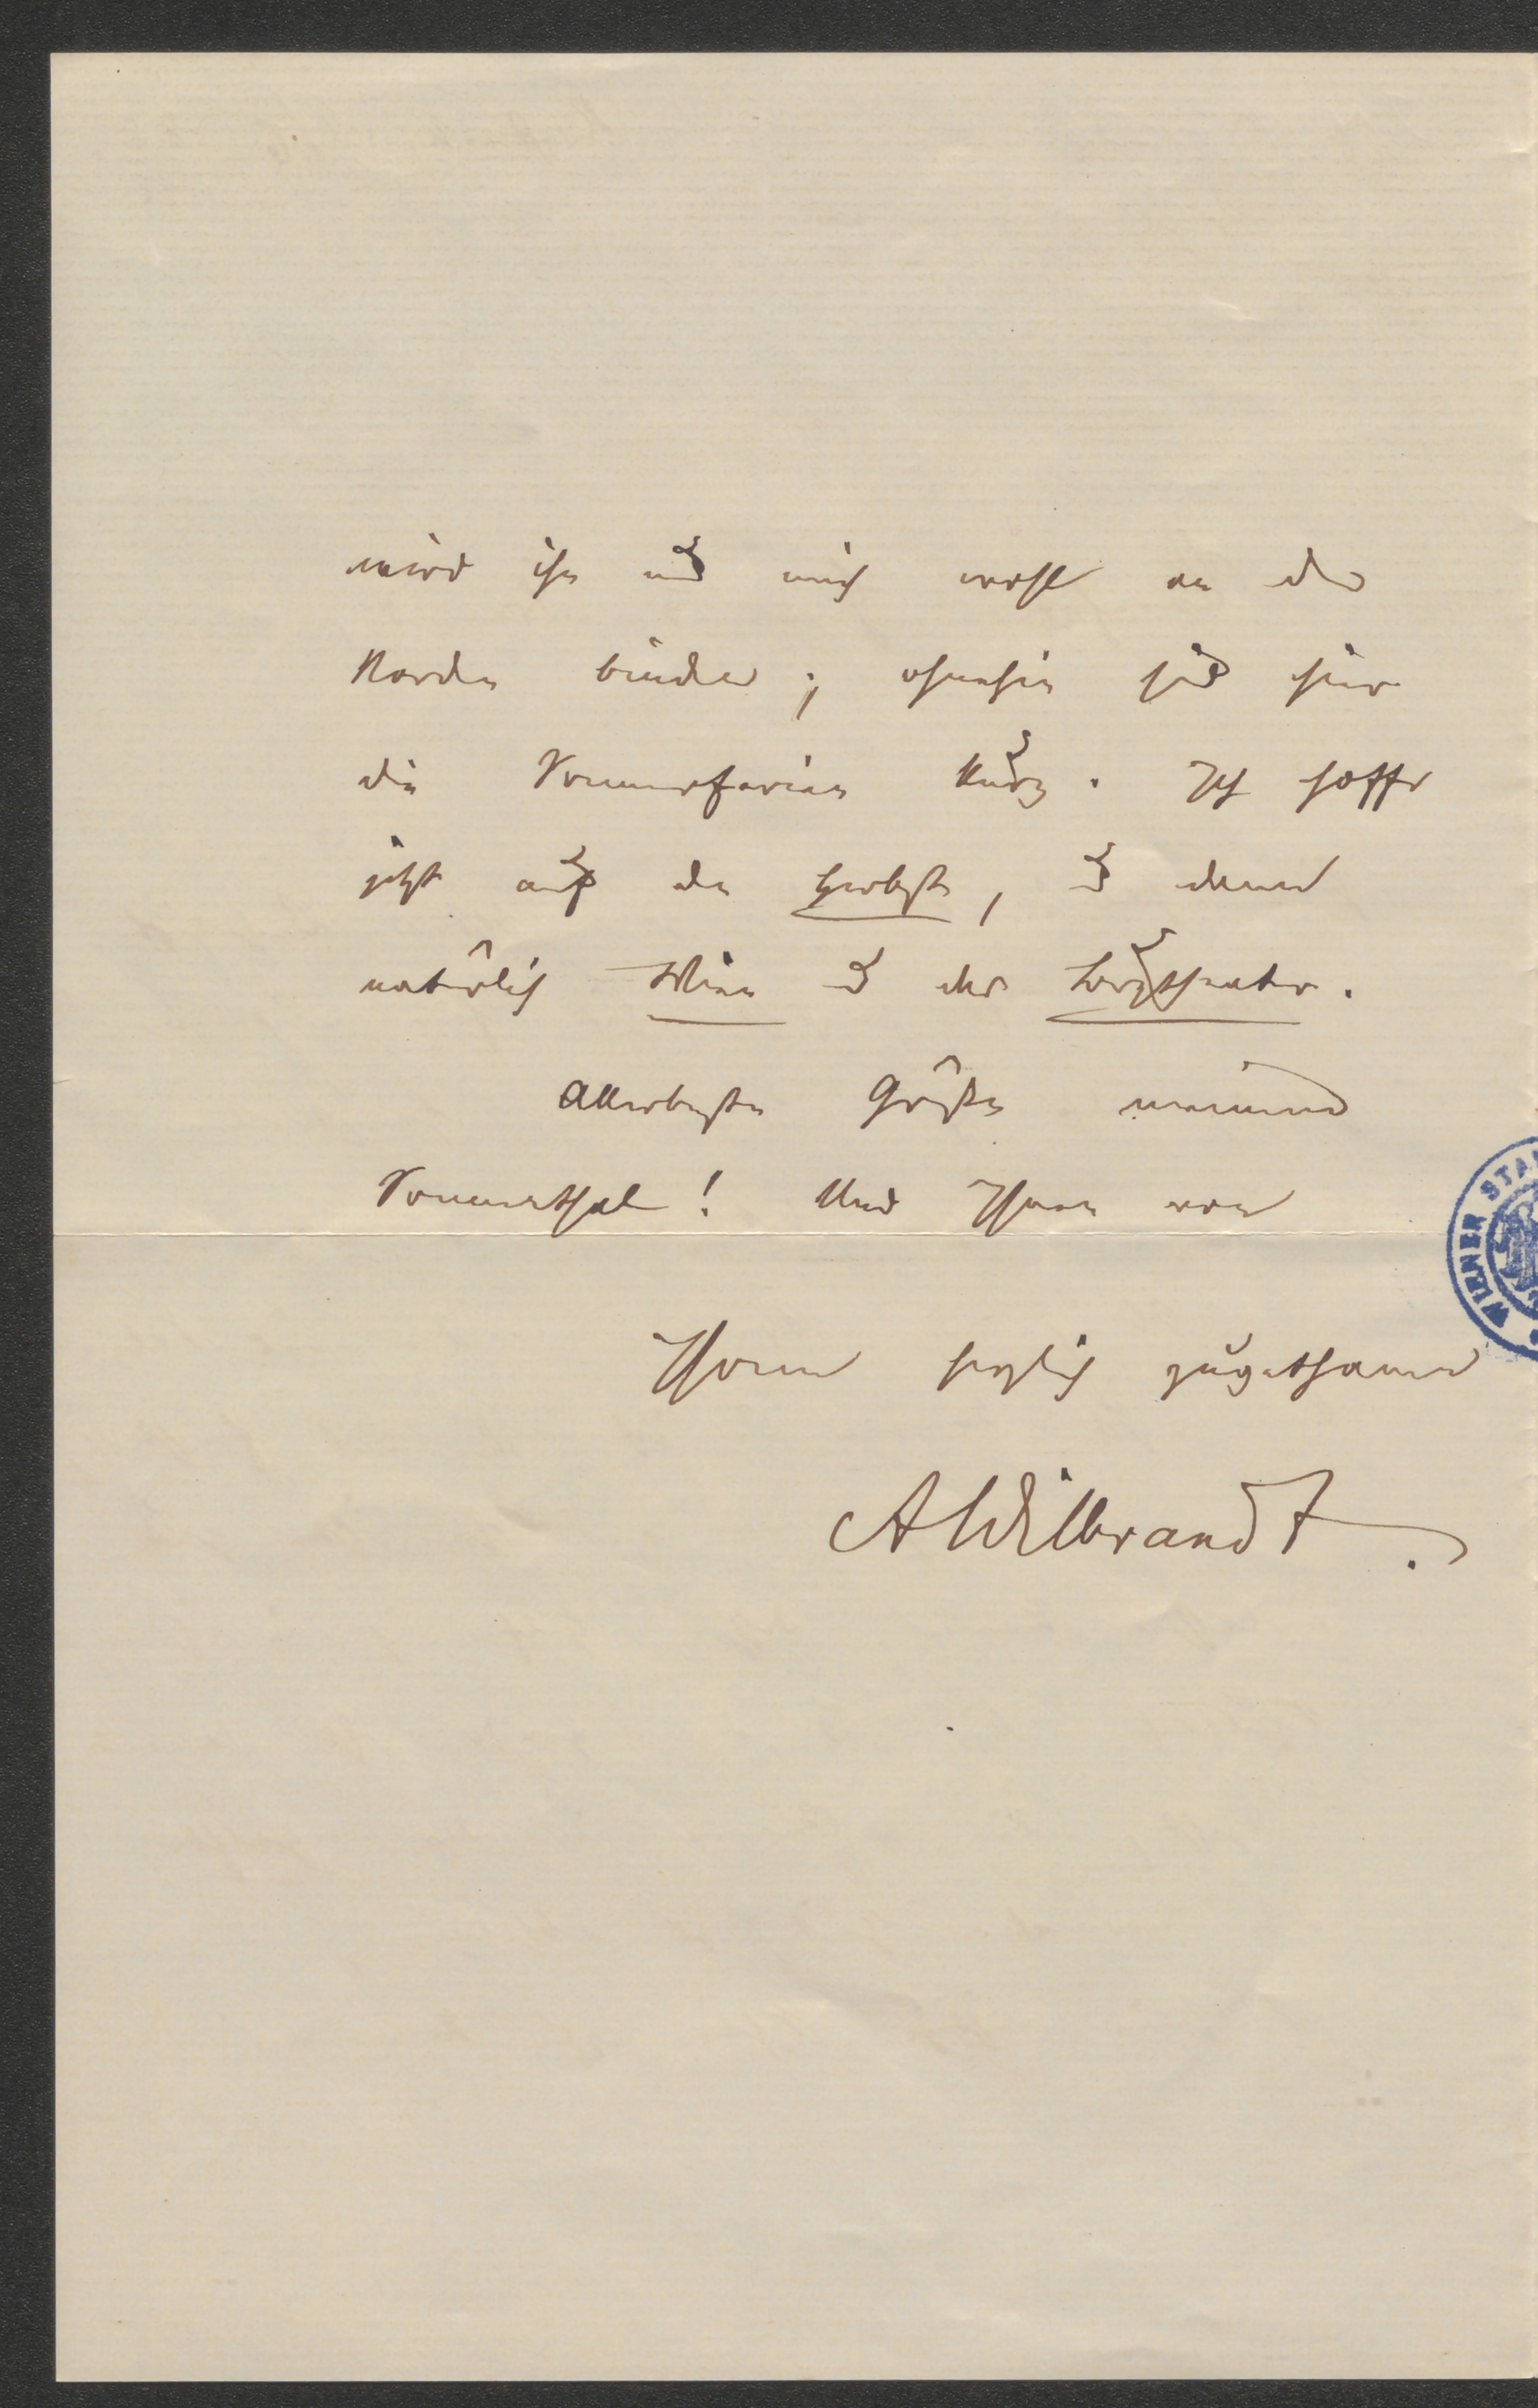 wird ihn und mich wohl an den
Norden binden; ohnehin sind hier
die Sommerferien kurz. Ich hoffe
jetzt auf den Herbst, u dann
natürlich Wien u das Burgtheater.
Allerbeste Grüße meinem
Sonnenthal! Und Ihnen von
Ihrem herzlich zugethanen
AWilbrandt.
WIENER STA